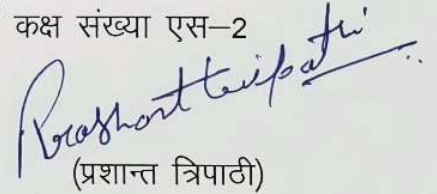 कक्ष संख्या एस–2
Prashant tripathi
(प्रशान्त त्रिपाठी)